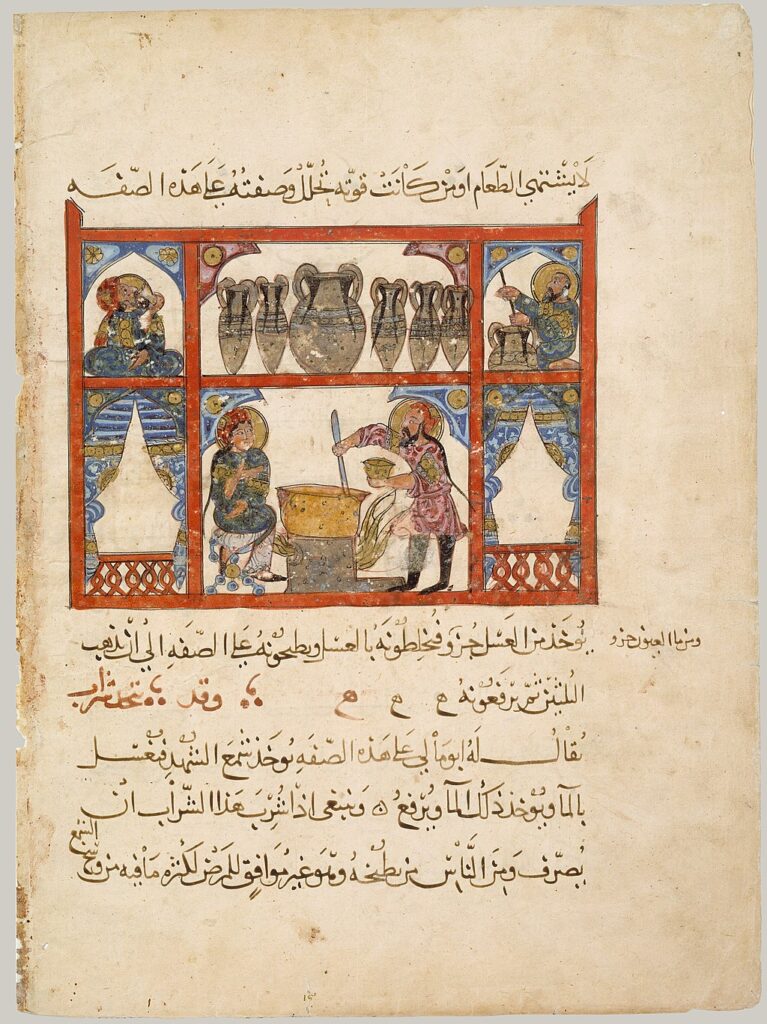 لَا يَشْتهي الطّعَام اومن كَانَتْ قوته تُحلّل وَصفتهُ عَلى هَذه الصّفَه
يُوخَذ من العَسَل جُزو فيُخلطُونَهُ بالعسَل ويطبخونهُ على الصّفَه الى ان يذهب
ومن ما العيون جزو
الثلثين ثمّ يرفَعُونهُ ه ه ه وقد يتخذ شراب
يُقالُ لهُ ابو مالي على هَذه الصّفَه يُوخَذ شمَعَ الشهْد فيُغسَل
بالما ويُوْخذ ذَلك الما ويُرفعُ ه وَينبغى اذا شُربَ هَذا الشّرابُ انْ
يُصرّف وَمِنَ النّاسِ من يطبخهُ وهو غير مُوَافِق للمرَضْ لكثره مَا فيه من وسخ
الشمع